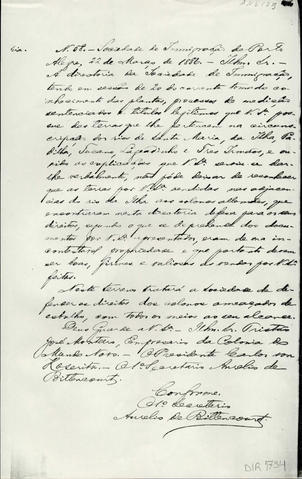 Cia. N. 66. - Sociedade de Immigração de Porto
Alegre, 22 de Março de 1886. - Illmo. Sr. -
A directoria da Sociedade de Immigração,
tendo em sessão de 20 do corrente tomado co-
nhecimento das plantas, processos de medição
sentenciados e titulos legitimos que V. Sª. pos-
sue das terras que lhe pertencem na circums-
cripção dos rios de Santa Maria, da Ilha, Pa-
dilha, Suzana, Lageadinho e Tres Irmãos, e ou-
vido as explicações que V. Sª. serviu-se dar-
lhe verbalmente, não póde deixar de reconhecer
que as terras por V. Sª. vendidas nas adjacen-
cias do rio da Ilha aos colonos allemães, que
encontraram nesta directoria defeza para os seus
direitos, segundo o que se deprehende dos docu-
mentos por V. Sª. apresentados, eram de sua in-
contestavel propriedade e que portanto devem
ser boas, firmes e valiosas as vendas por V. Sª.
feitas.
Neste terreno tratará a sociedade de
defender os direitos dos colonos ameaçados de
esbulho, com todos os meios ao seu alcance.
Deus Guarde a V. Sª. - Illmo. Sr. Tristão
José Monteiro, Empresario da Colonia do
Mundo Novo. - O Presidente Carlos von
Koseritz. - O 1º Secretario Aurelio de
Bittencourt.
Conforme.
O 1º Secretario
Aurelio de Bittencourt
DIR 734